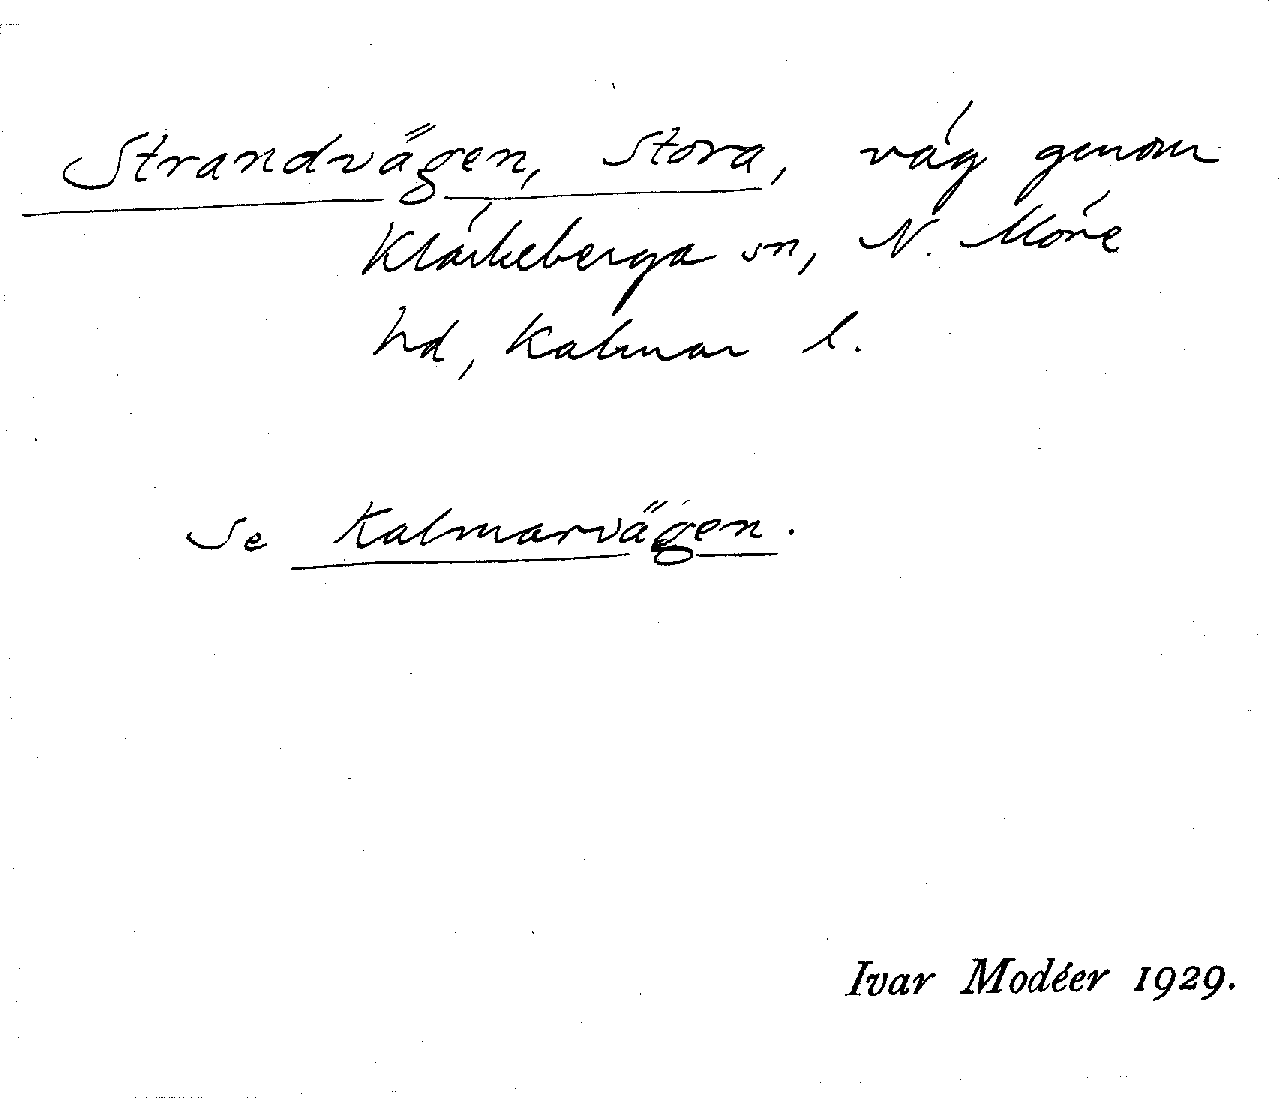 Strandvägen, Stora, väg genom
Kläckeberga sn, N. Möre
hd, Kalmar l.
Se Kalmarvägen.
Ivar Modéer 1929.